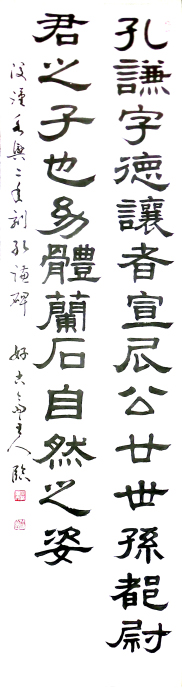 孔謙字德讓者宣尼公廿世孫都尉
君之子也幼體蘭石自然之姿
後漢永興二年刻孔謙碑 好古齋主人臨